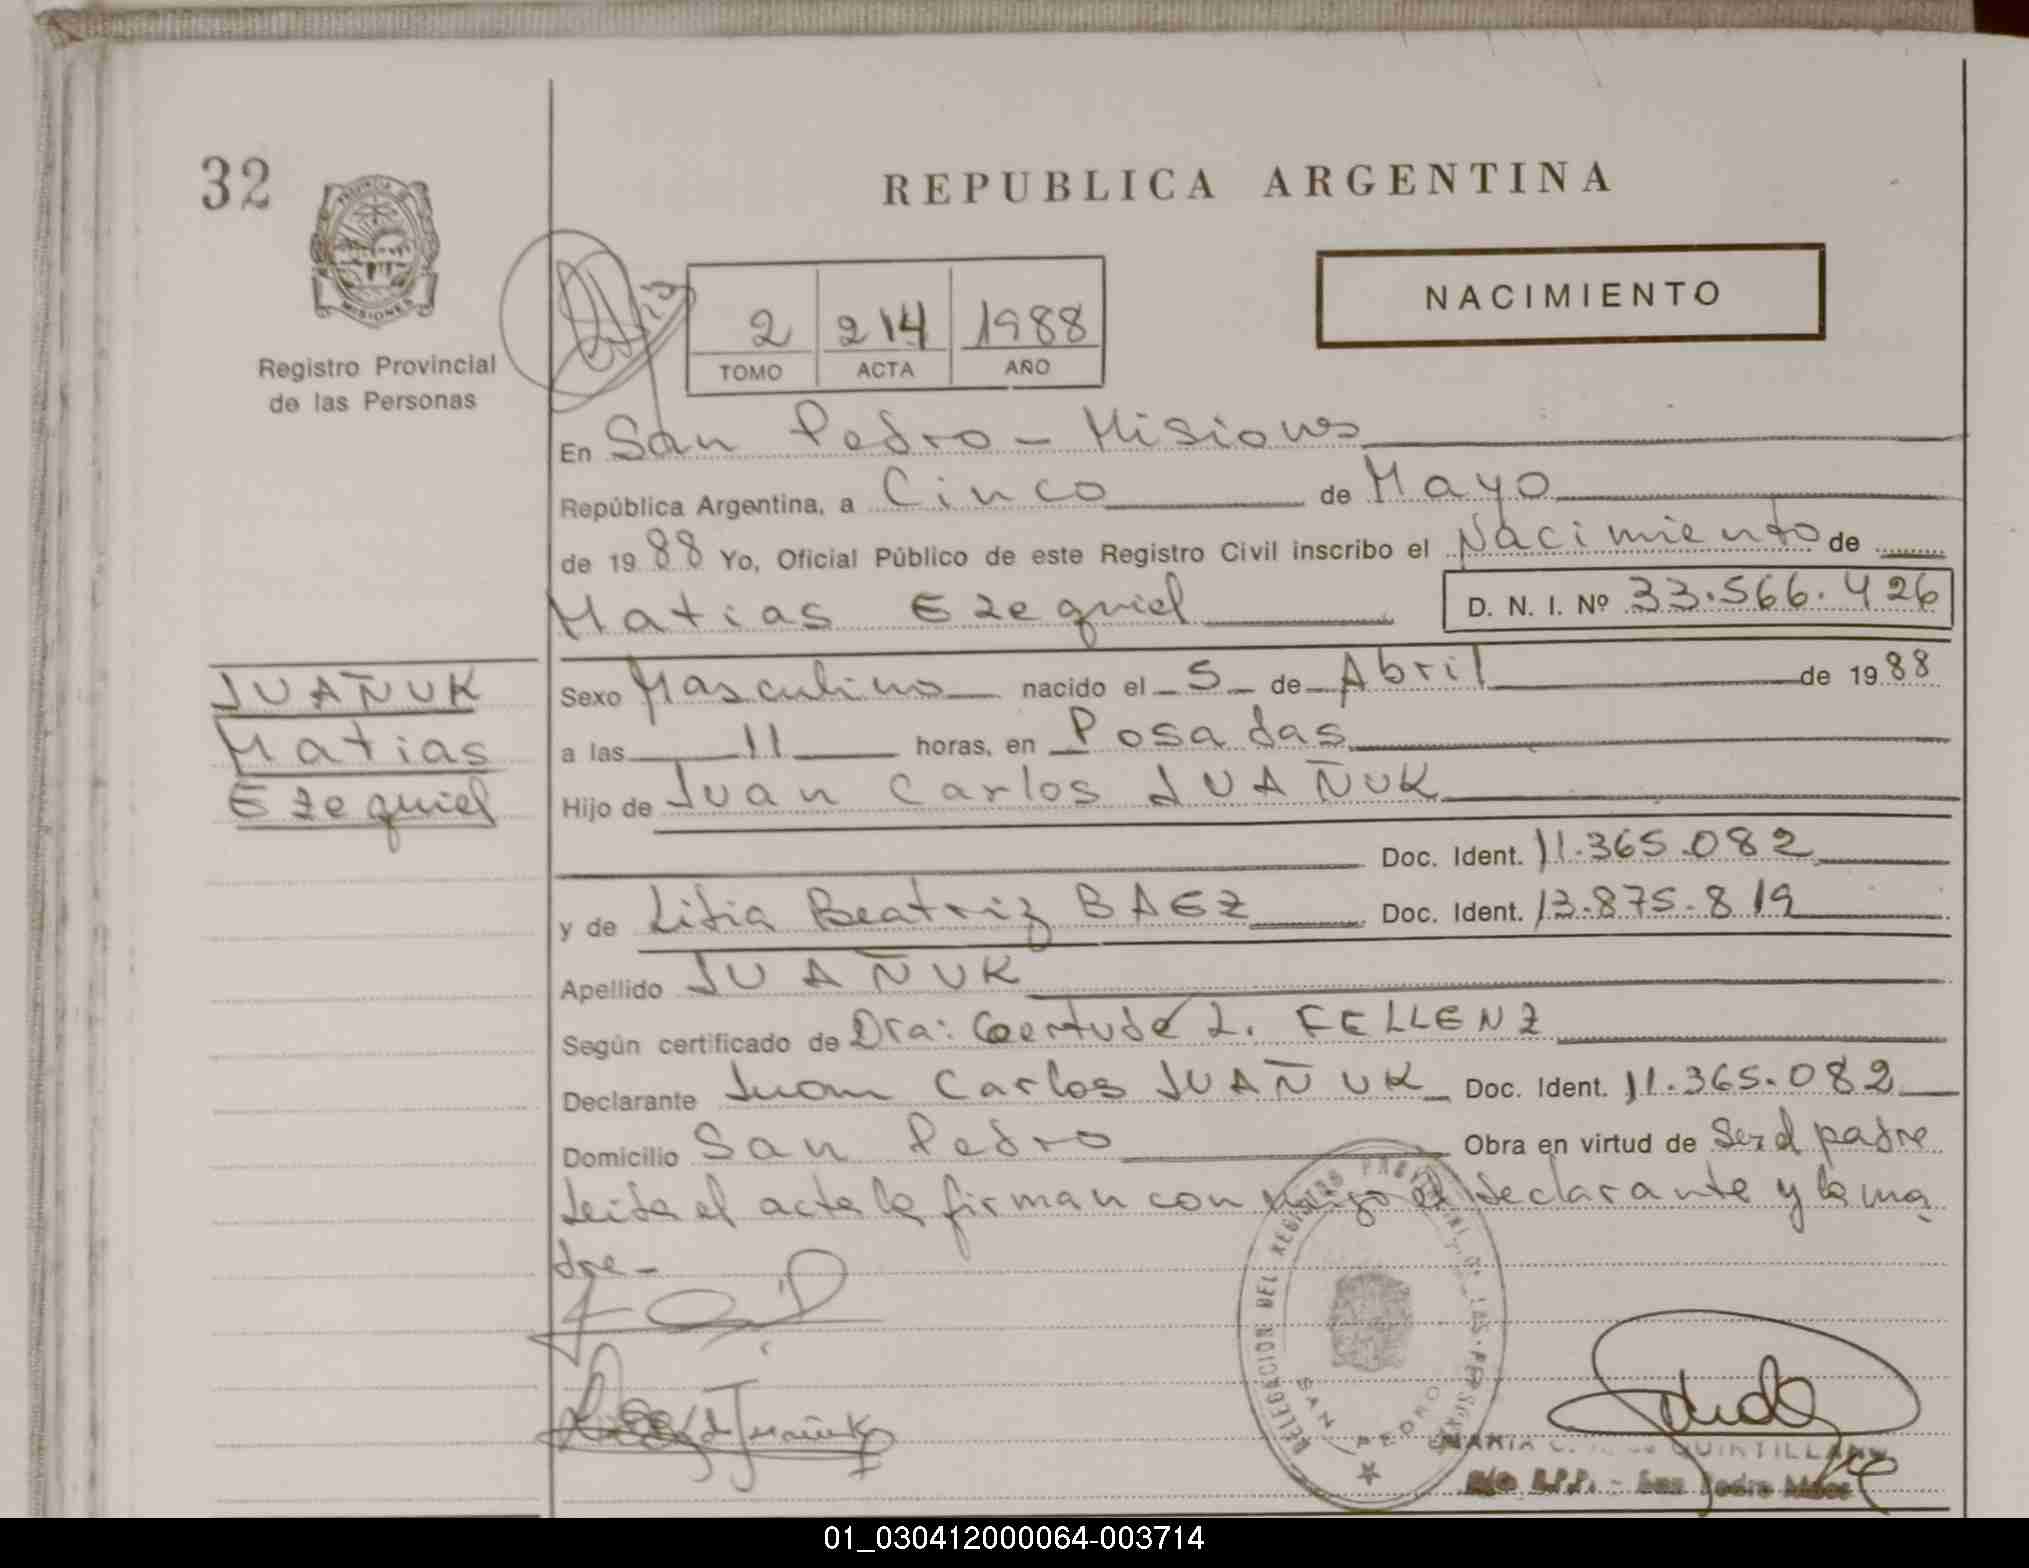 32
PROVINCIA DE
MISIONES
Registro Provincial
de las Personas
REPUBLICA ARGENTINA
NACIMIENTO
2 214 1988
TOMO ACTA AÑO
En San Pedro - Misiones
República Argentina, a Cinco de Mayo
de 1988 Yo, Oficial Público de este Registro Civil inscribo el Nacimiento de
Matias Ezequiel D. N. I. Nº 33.566.426
JUAÑUK
Matias
Ezequiel
Sexo Masculino nacido el 5 de Abril de 1988
a las 11 horas, en Posadas
Hijo de Juan Carlos JUAÑUK
Doc. Ident. 11.365.082
y de Lidia Beatriz BAEZ Doc. Ident. 13.875.819
Apellido JUAÑUK
Según certificado de Dra: L. FELLENZ
Declarante Juan Carlos JUAÑUK Doc. Ident. 11.365.082
Domicilio San Pedro Obra en virtud de Ser el padre
Leida el acta la firman conmigo el declarante y la ma
dre-
DELEGACION DEL REGISTRO PROVINCIAL DE LAS PERSONAS
SAN PEDRO
QUINTILLAN
R.P.P. - San Pedro Mnes
01_030412000064-003714